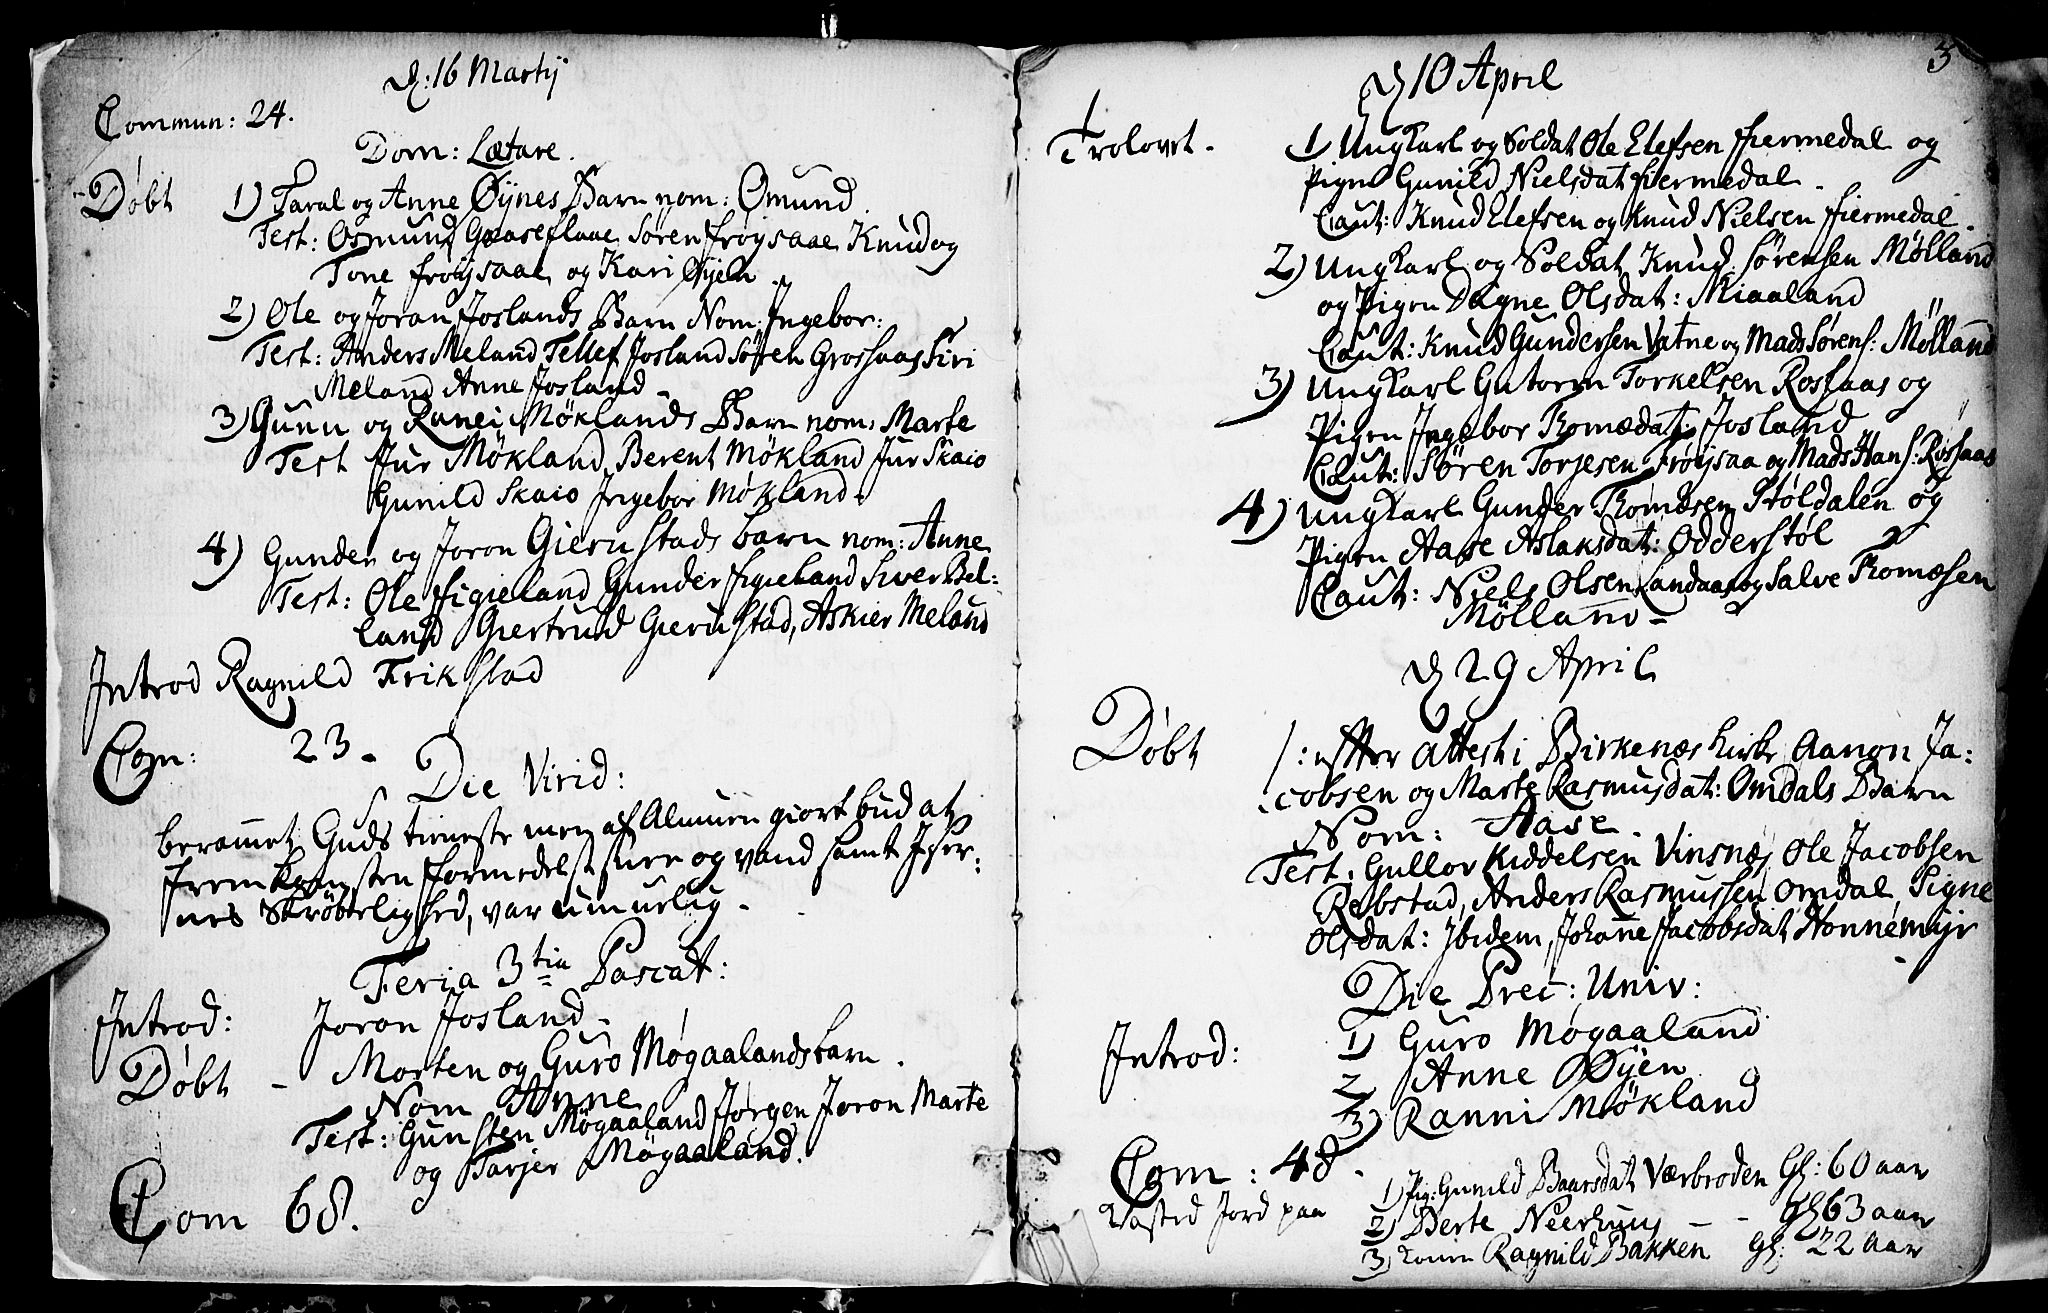 D: 16 Martij
Commun: 24.
Dom: Lætare.
Døbt 1) Taral og Anne Øynes Barn nom: Omund.
Test: Osmund Gaaseflaae Søren frøysaae Knud og
Tone frøysaae og Kari Øyen.
2) Ole og Joran Joslands Barn Nom: Ingebor:
Test: Anders Meland Tellef Josland Søren Grossaas Siri
Meland Anne Josland
3) Gunu og Ranei Møklands Barn nom: Marte
Test Jur Mökland Berent Mökland Jur Skaio
Gunild Skaio Ingebor Møkland.
4) Gunder og Joron Gierustads barn nom: Anne
Test: Ole figieland Gunder figieland Siver Bel-
land Giertrud Gierustad, Askier Meland
Introd Ragnild Erikstad
Com: 23.
Die Virid:
berammet Guds tieneste men af Almuen giort bud at
fremkomsten formedelst snee og vand samt Iser-
nes Skrøbelighed, var umuelig.
Feria 3tia Pascat:
Introd: Joron Josland.
Døbt - Morten og Guro Møgaalands barn.
Nom Anne
Test: Gunsten Møgaaland Jørgen Joron Marte
og Tarjer Møgaaland.
Com 68.
3
D 10 April
Trolovet. 1) Ungkarl og Soldat Ole Elefsen fiermedal og
Pigen Gunild Nielsdat fiermedal.
Caut: Knud Elefsen og Knud Nielsen fiermedal.
2) Ungkarl og Soldat Knud Sørensen Mølland
og Pigen Dagne Olsdat: Miaaland
Caut: Knud Gundersen Vatne og Mads Sørens: Mölland
3) Ungkarl Gutorm Torkelsen Rossaas og
Pigen Ingebor Tomædat: Josland
Caut: Søren Torjesen Frøysaa og Mads Hans: Rossaas
4) Ungkarl Gunder Tomæsen Støldalen og
Pigen Aase Aslaksdat: Odderstøl
Caut: Niels Olsen Landaas og Salve Tomæsen
Mölland
D 29 April
Døbt /: efter attest i Birkenæs kirke Aanon Ja-
cobsen og Marte Rasmusdat: Omdals Barn
Nom: Aase.
Test: Gullov Kiddelsen Vinsnæs Ole Jacobsen
Rebstad, Anders Rasmussen Omdal, Signe
Olsdat: Ibidem, Johanne Jacobsdat Honnemyr
Die Prec: Univ:
Introd: 1) Guro Møgaaland
2 Anne Øyen
3) Ranni Møkland
Com: 48.
Kasted Jord paa 1) Pig: Gunild Baarsdat Værbroden Gl: 60 aar
2) Berte Neerhuus - - Gl 63 aar
3) konen Ragnild Bakken Gl: 22 aar